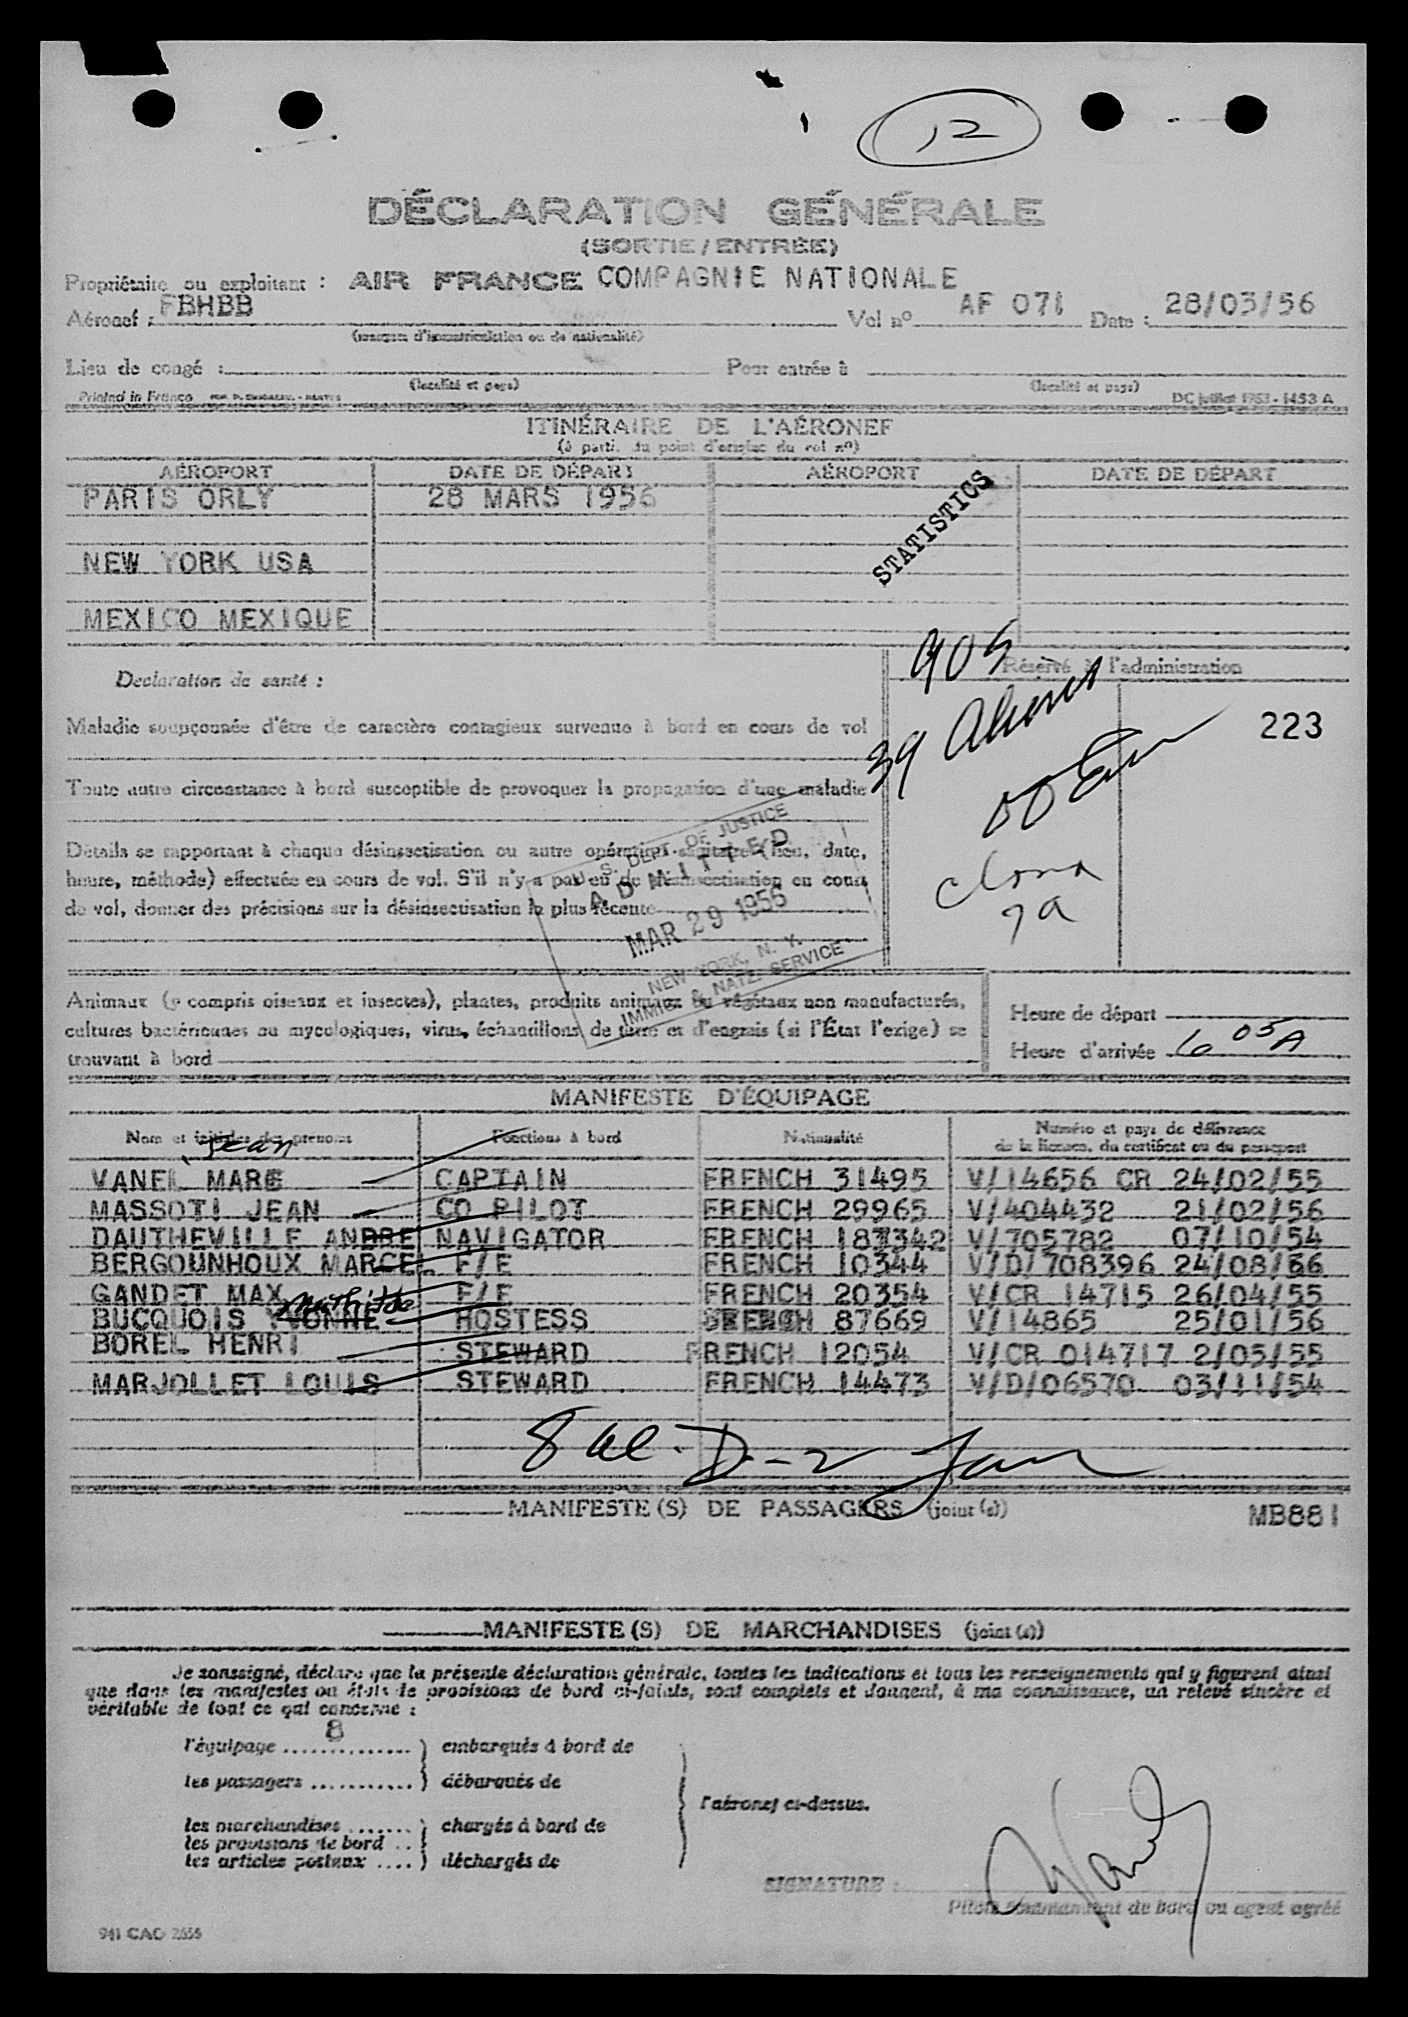 12
DÉCLARATION GÉNÉRALE
(SORTIE/ENTRÉE)
Propriétaire ou exploitant : AIR FRANCE COMPAGNIE NATIONALE
Aéronef : FBHBB Vol nº AF 071 Date : 28/03/56
(marques d'immatriculation ou de nationalité)
Lieu de congé : Pour entrée à
(localité et pays) (localité et pays)
Printed in France DC juillet 1953 - 1453 A
ITINÉRAIRE DE L'AÉRONEF
(à partir du point d'origine du vol nº)
AÉROPORT DATE DE DÉPART AÉROPORT DATE DE DÉPART
PARIS ORLY 28 MARS 1956
STATISTICS
NEW YORK USA
MEXICO MEXIQUE
905
Déclaration de santé : Réservé à l'administration
39 Aliens
223
Maladie soupçonnée d'être de caractère contagieux survenue à bord en cours de vol
Toute autre circonstance à bord susceptible de provoquer la propagation d'une maladie
Détails se rapportant à chaque désinsectisation ou autre opération sanitaire (lieu, date,
heure, méthode) effectuée en cours de vol. S'il n'y a pas eu de désinsectisation en cours
de vol, donner des précisions sur la désinsectisation la plus récente
U. S. DEPT. OF JUSTICE
ADMITTED
MAR 29 1956
NEW YORK, N. Y.
IMMIG. & NATZ. SERVICE
Animaux (y compris oiseaux et insectes), plantes, produits animaux ou végétaux non manufacturés,
cultures bactériennes ou mycologiques, virus, échantillons de terre et d'engrais (si l'État l'exige) se
trouvant à bord
Heure de départ
Heure d'arrivée 6 05 A
MANIFESTE D'ÉQUIPAGE
Nom et initiales des prénoms Fonctions à bord Nationalité Numéro et pays de délivrance
de la licence, du certificat ou du passeport
Jean
VANEL MARC CAPTAIN FRENCH 31495 V/14656 CR 24/02/55
MASSOTI JEAN CO PILOT FRENCH 29965 V/404432 21/02/56
DAUTHEVILLE ANDRE NAVIGATOR FRENCH 187342 V/705782 07/10/54
BERGOUNHOUX MARCEL F/E FRENCH 10344 V/D/708396 24/08/56
GANDET MAX F/E FRENCH 20354 V/CR 14715 26/04/55
Mathilde
BUCQUOIS YVONNE HOSTESS FRENCH 87669 V/14865 25/01/56
BOREL HENRI STEWARD FRENCH 12054 V/CR 014717 2/05/55
MARJOLLET LOUIS STEWARD FRENCH 14473 V/D/06570 03/11/54
MANIFESTE(S) DE PASSAGERS (joint (s))
MB881
MANIFESTE(S) DE MARCHANDISES (joint (s))
Je soussigné, déclare que la présente déclaration générale, toutes les indications et tous les renseignements qui y figurent ainsi
que dans les manifestes ou états de provisions de bord ci-joints, sont complets et donnent, à ma connaissance, un relevé sincère et
véritable de tout ce qui concerne :
l'équipage 8 embarqués à bord de
les passagers débarqués de
l'aéronef ci-dessus.
les marchandises chargés à bord de
les provisions de bord
les articles postaux déchargés de
SIGNATURE :
Pilote commandant de bord ou agent agréé